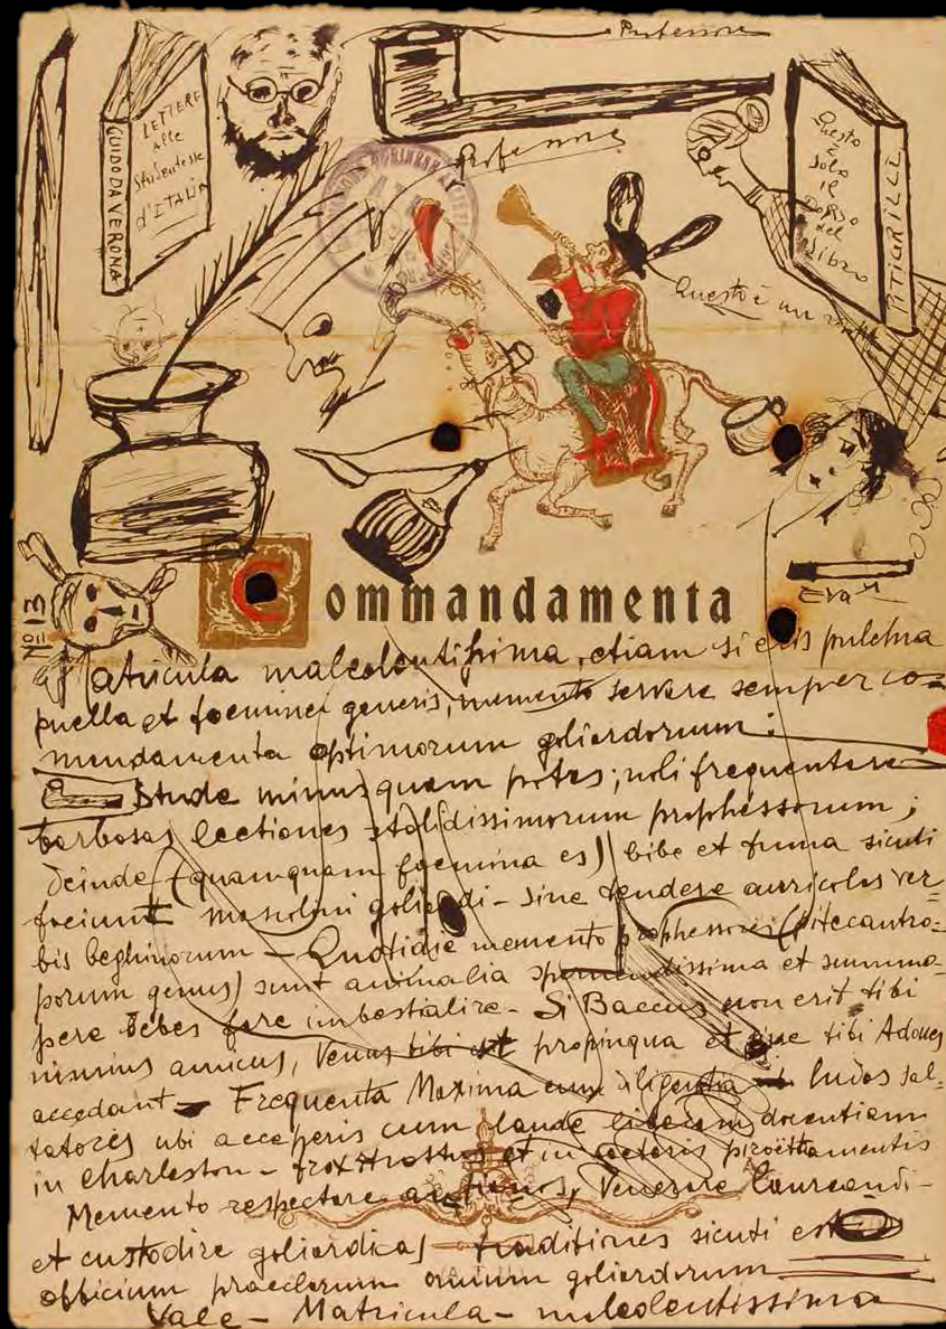 Professore
GUIDO DA VERONA
LETTERE
alle
studentesse
d'ITALIA
Professore
Questo
è
solo
il
DORSO
del
Libro
PITIGRILLI
Questo è un
Eva
No 13
Commandamenta
Matricula maleolentissima, etiam si eris pulchra
puella et foeminei generis, memento servare semper co=
mandamenta optimorum goliardorum:
Stude minus quam potes; noli frequentare
barbosas lectiones stolidissimorum prophessorum;
deinde (quamquam foemina es) bibe et fuma sicuti
faciunt masculini goliardi - sine tendere auricolas ver=
bis beghinorum - Quotidie memento prophessores (pitecantro=
porum genus) sunt animalia et summo=
pere debes fore imbestialire - Si Baccus non erit tibi
nimius amicus, Venus tibi est propinqua et sine tibi Adones
accedant - Frequenta Maxima cum diligentia ludos sal=
tatores ubi acceperis cum laude docentiam
in Charleston - fox trottus et in coeteris piroettamentis
Memento respectare antianos, Venerare laureandi -
et custodire goliardicas traditiones sicuti est
obbicium praeclarum omnium goliardorum
Vale - Matricula - maleolentissima